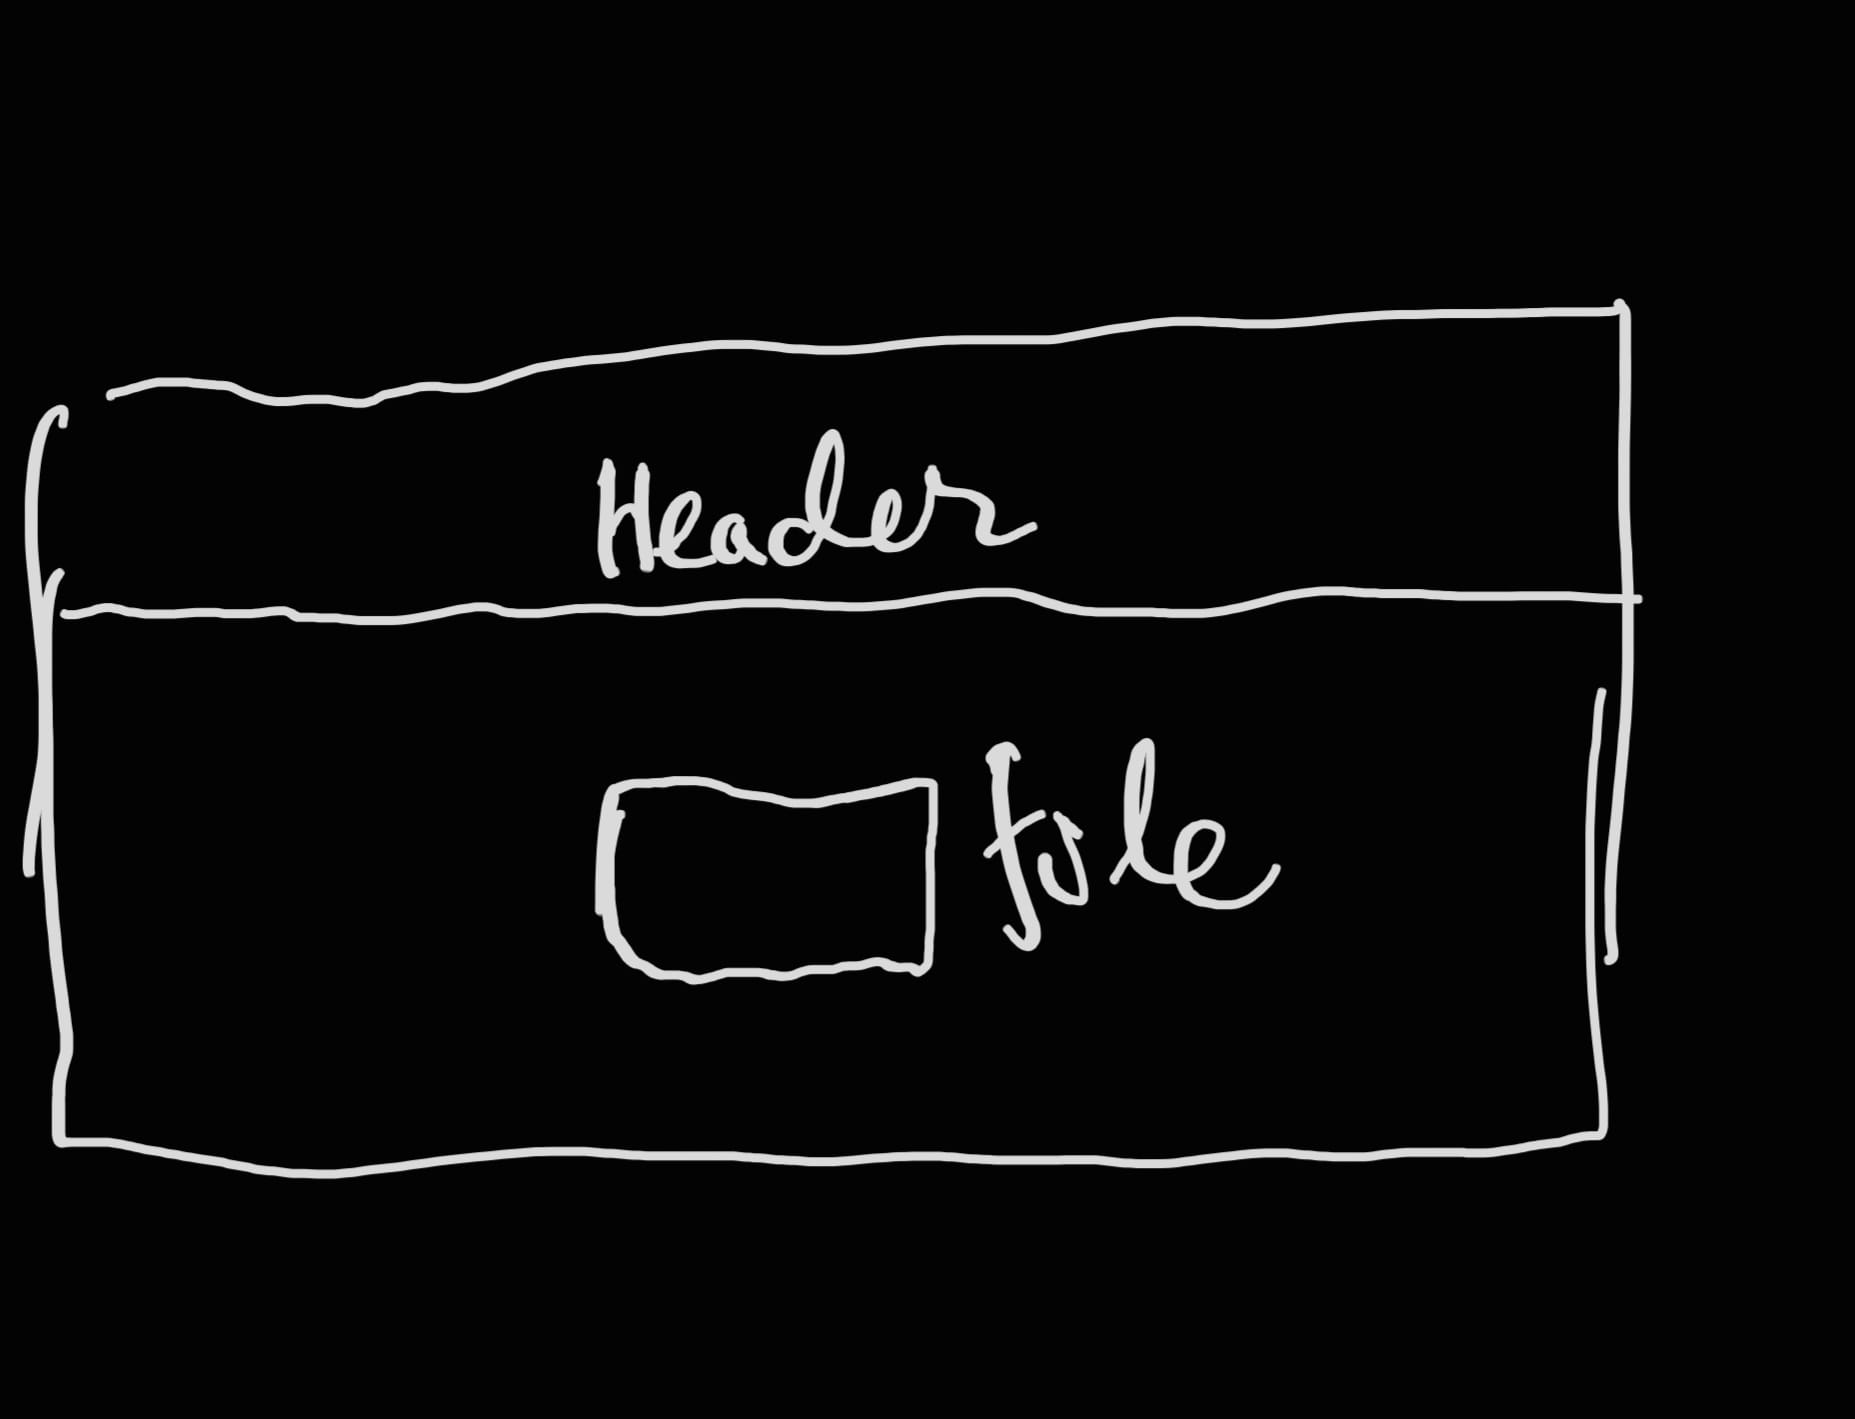 Header
file